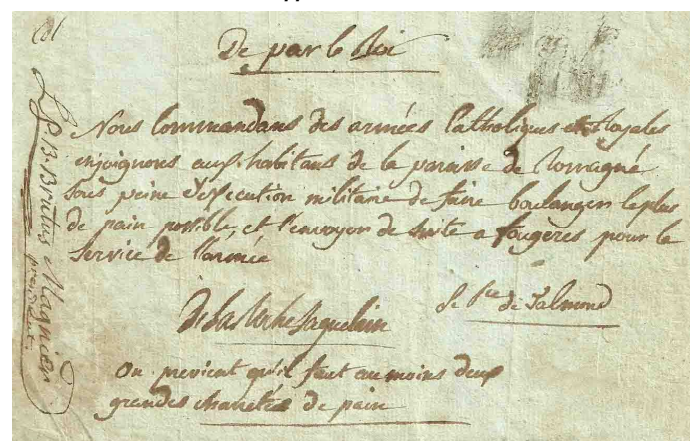 De par le Roi
Nous Commandans des armées Catholiques et Royales
enjoignons aux habitans de la paroisse de Romagné
sous peine d'execution militaire de faire boulanger le plus
de pain possible, et l'envoyer de suite a fougères pour le
Service de l'armée
de la Roche Jaquelein
le P.ce de Talmond
On previent qu'il faut au moins deux
grandes charretées de pain
J. B. Brutus Magnier
president.